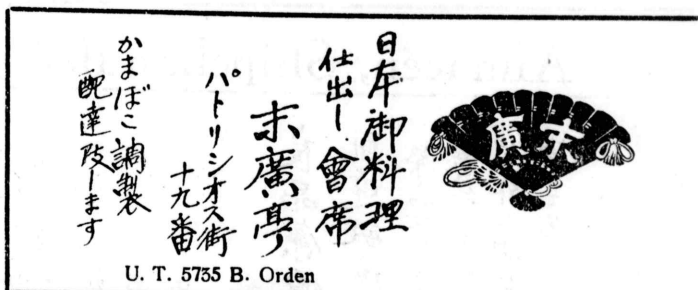 末廣
日本御料理
仕出し、會席
末廣亭
パトリシオス街
十九番
かまぼこ調製
配達致します
U. T. 5735 B. Orden